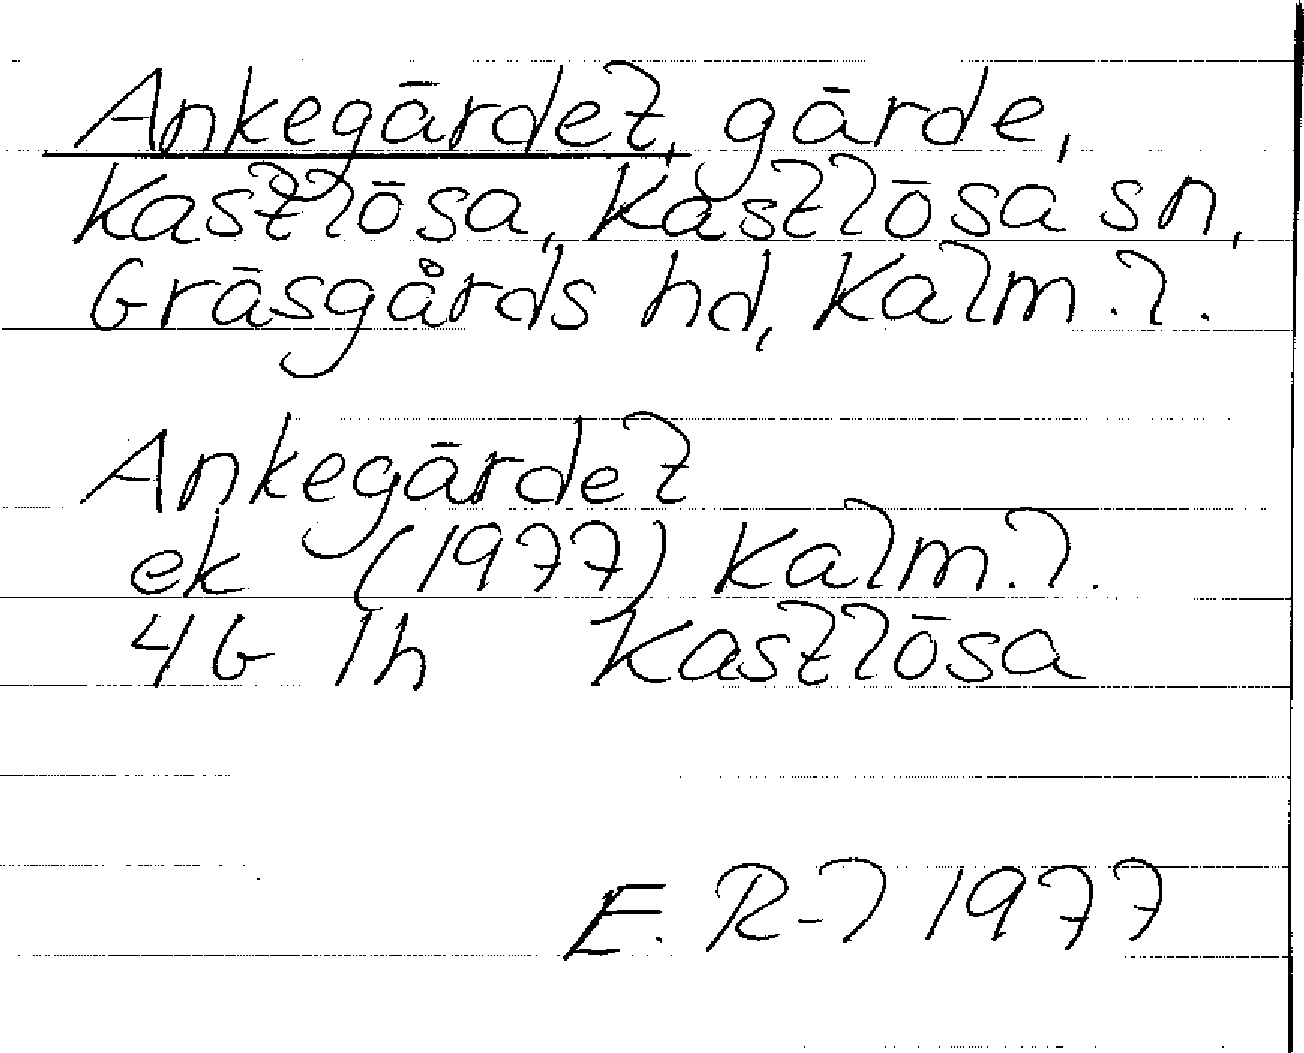 Ankegärdet, gärde,
Kastlösa, Kastlösa sn,
Gräsgårds hd, Kalm. l.
Ankegärdet
ek (1977) Kalm. l.
4G 1h Kastlösa
E. R-l 1977